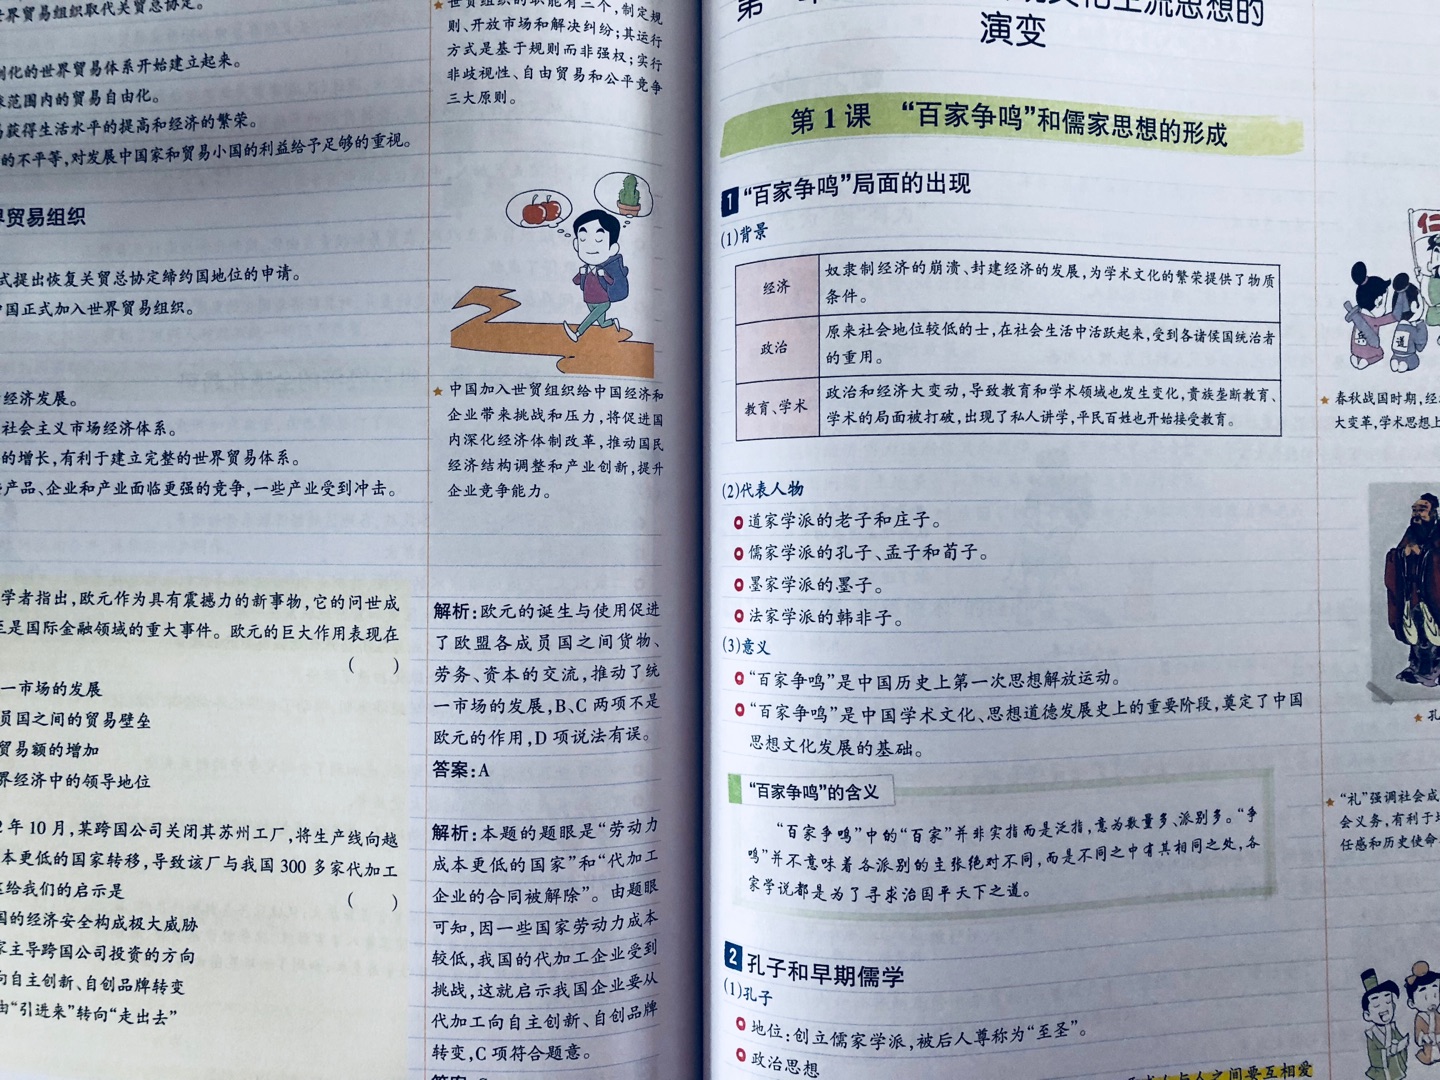 世界贸易组织取代关贸总协定。
制化的世界贸易体系开始建立起来。
球范围内的贸易自由化。
易获得生活水平的提高和经济的繁荣。
的不平等,对发展中国家和贸易小国的利益给予足够的重视。
界贸易组织
式提出恢复关贸总协定缔约国地位的申请。
中国正式加入世界贸易组织。
经济发展。
社会主义市场经济体系。
的增长,有利于建立完整的世界贸易体系。
产品、企业和产业面临更强的竞争,一些产业受到冲击。
学者指出,欧元作为具有震撼力的新事物,它的问世成
至是国际金融领域的重大事件。欧元的巨大作用表现在
( )
一市场的发展
员国之间的贸易壁垒
贸易额的增加
界经济中的领导地位
2年10月,某跨国公司关闭其苏州工厂,将生产线向越
本更低的国家转移,导致该厂与我国300多家代加工
这给我们的启示是 ( )
国的经济安全构成极大威胁
家主导跨国公司投资的方向
向自主创新、自创品牌转变
由“引进来”转向“走出去”
★世贸组织的职能有三个,制定规
则、开放市场和解决纠纷;其运行
方式是基于规则而非强权;实行
非歧视性、自由贸易和公平竞争
三大原则。
★中国加入世贸组织给中国经济和
企业带来挑战和压力,将促进国
内深化经济体制改革,推动国民
经济结构调整和产业创新,提升
企业竞争能力。
解析:欧元的诞生与使用促进
了欧盟各成员国之间货物、
劳务、资本的交流,推动了统
一市场的发展,B、C两项不是
欧元的作用,D项说法有误。
答案:A
解析:本题的题眼是“劳动力
成本更低的国家”和“代加工
企业的合同被解除”。由题眼
可知,因一些国家劳动力成本
较低,我国的代加工企业受到
挑战,这就启示我国企业要从
代加工向自主创新、自创品牌
转变,C项符合题意。
文化主流思想的
演变
第1课 “百家争鸣”和儒家思想的形成
1 “百家争鸣”局面的出现
(1)背景
经济 奴隶制经济的崩溃、封建经济的发展,为学术文化的繁荣提供了物质
条件。
政治 原来社会地位较低的士,在社会生活中活跃起来,受到各诸侯国统治者
的重用。
教育、学术 政治和经济大变动,导致教育和学术领域也发生变化,贵族垄断教育、
学术的局面被打破,出现了私人讲学,平民百姓也开始接受教育。
(2)代表人物
道家学派的老子和庄子。
儒家学派的孔子、孟子和荀子。
墨家学派的墨子。
法家学派的韩非子。
(3)意义
“百家争鸣”是中国历史上第一次思想解放运动。
“百家争鸣”是中国学术文化、思想道德发展史上的重要阶段,奠定了中国
思想文化发展的基础。
“百家争鸣”的含义
“百家争鸣”中的“百家”并非实指而是泛指,意为数量多、派别多。“争
鸣”并不意味着各派别的主张绝对不同,而是不同之中有其相同之处,各
家学说都是为了寻求治国平天下之道。
2 孔子和早期儒学
(1)孔子
地位:创立儒家学派,被后人尊称为“至圣”。
政治思想
人与人之间要互相爱
仁
兵
道
★春秋战国时期,经
大变革,学术思想上
★孔
★“礼”强调社会成
会义务,有利于
任感和历史使命